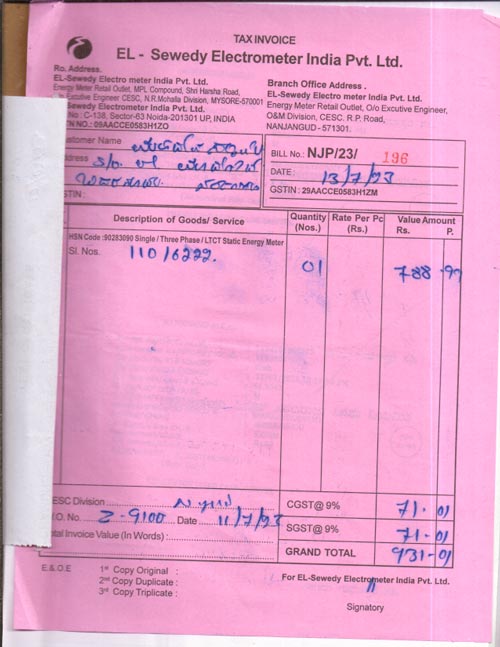 TAX INVOICE
EL - Sewedy Electrometer India Pvt. Ltd.
Ro. Address.
EL-Sewedy Electro meter India Pvt. Ltd.
Energy Meter Retail Outlet, MPL Compound, Shri Harsha Road,
Executive Engineer CESC, N.R.Mohalla Division, MYSORE-570001
Sewedy Electrometer India Pvt. Ltd.
No : C-138, Sector-63 Noida-201301 UP, INDIA
TN NO.: 09AACCE0583H1ZO
Branch Office Address .
EL-Sewedy Electro meter India Pvt. Ltd.
Energy Meter Retail Outlet, O/o Executive Engineer,
O&M Division, CESC. R.P. Road,
NANJANGUD - 571301.
ustomer Name
ddress
GSTIN :
BILL No.: NJP/23/ 196
DATE : 13/7/23
GSTIN : 29AACCE0583H1ZM
Description of Goods/ Service
Quantity (Nos.)
Rate Per Pc (Rs.)
Value Amount
Rs. P.
HSN Code :90283090 Single / Three Phase / LTCT Static Energy Meter
Sl. Nos. 110/6222.
01
788 .99
ESC Division
.O. No. Z-9100 Date 11/7/23
otal Invoice Value (In Words) :
CGST@ 9% 71. 01
SGST@ 9% 71-01
GRAND TOTAL 931-01
E.& O.E
1st Copy Original :
2nd Copy Duplicate :
3rd Copy Triplicate :
For EL-Sewedy Electrometer India Pvt. Ltd.
Signatory